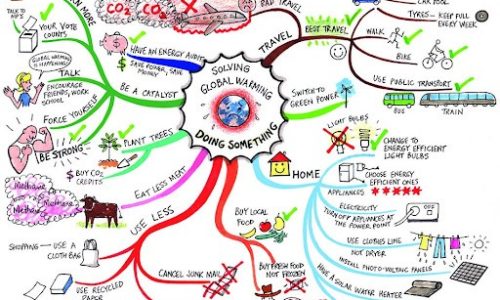 TALK TO MP'S
YOUR VOTE COUNTS
EVEN MORE
CO2
CO2
BAD TRAVEL
CAR POOL
TYRES - KEEP FULL
EVERY WEEK
TRAVEL
BEST TRAVEL
WALK
BIKE
USE PUBLIC TRANSPORT
BUS
TRAIN
HAVE AN ENERGY AUDIT
SAVE POWER, SAVE
MONEY
GLOBAL WARMING
IS HAPPENING!
TALK
ENCOURAGE
FRIENDS, WORK
SCHOOL
BE A CATALYST
SOLVING
GLOBAL WARMING
DOING SOMETHING
SWITCH TO
GREEN POWER
FORCE YOURSELF
BE STRONG
PLANT TREES
$ BUY CO2
CREDITS
LIGHT BULBS
CHANGE TO
ENERGY EFFICIENT
LIGHT BULBS
HOME
CHOOSE ENERGY
EFFICIENT ONES
APPLIANCES
ELECTRICITY
TURN OFF APPLIANCES AT
THE POWER POINT
Methane
Methane
EAT LESS MEAT
USE LESS
BUY LOCAL
FOOD
USE CLOTHES LINE
NOT DRYER
INSTALL PHOTO-VOLTAIC PANELS
HAVE A SOLAR WATER HEATER
SHOPPING - USE A
CLOTH BAG
CANCEL JUNK MAIL
BUY FRESH FOOD
NOT FROZEN
USE RECYCLED
PAPER